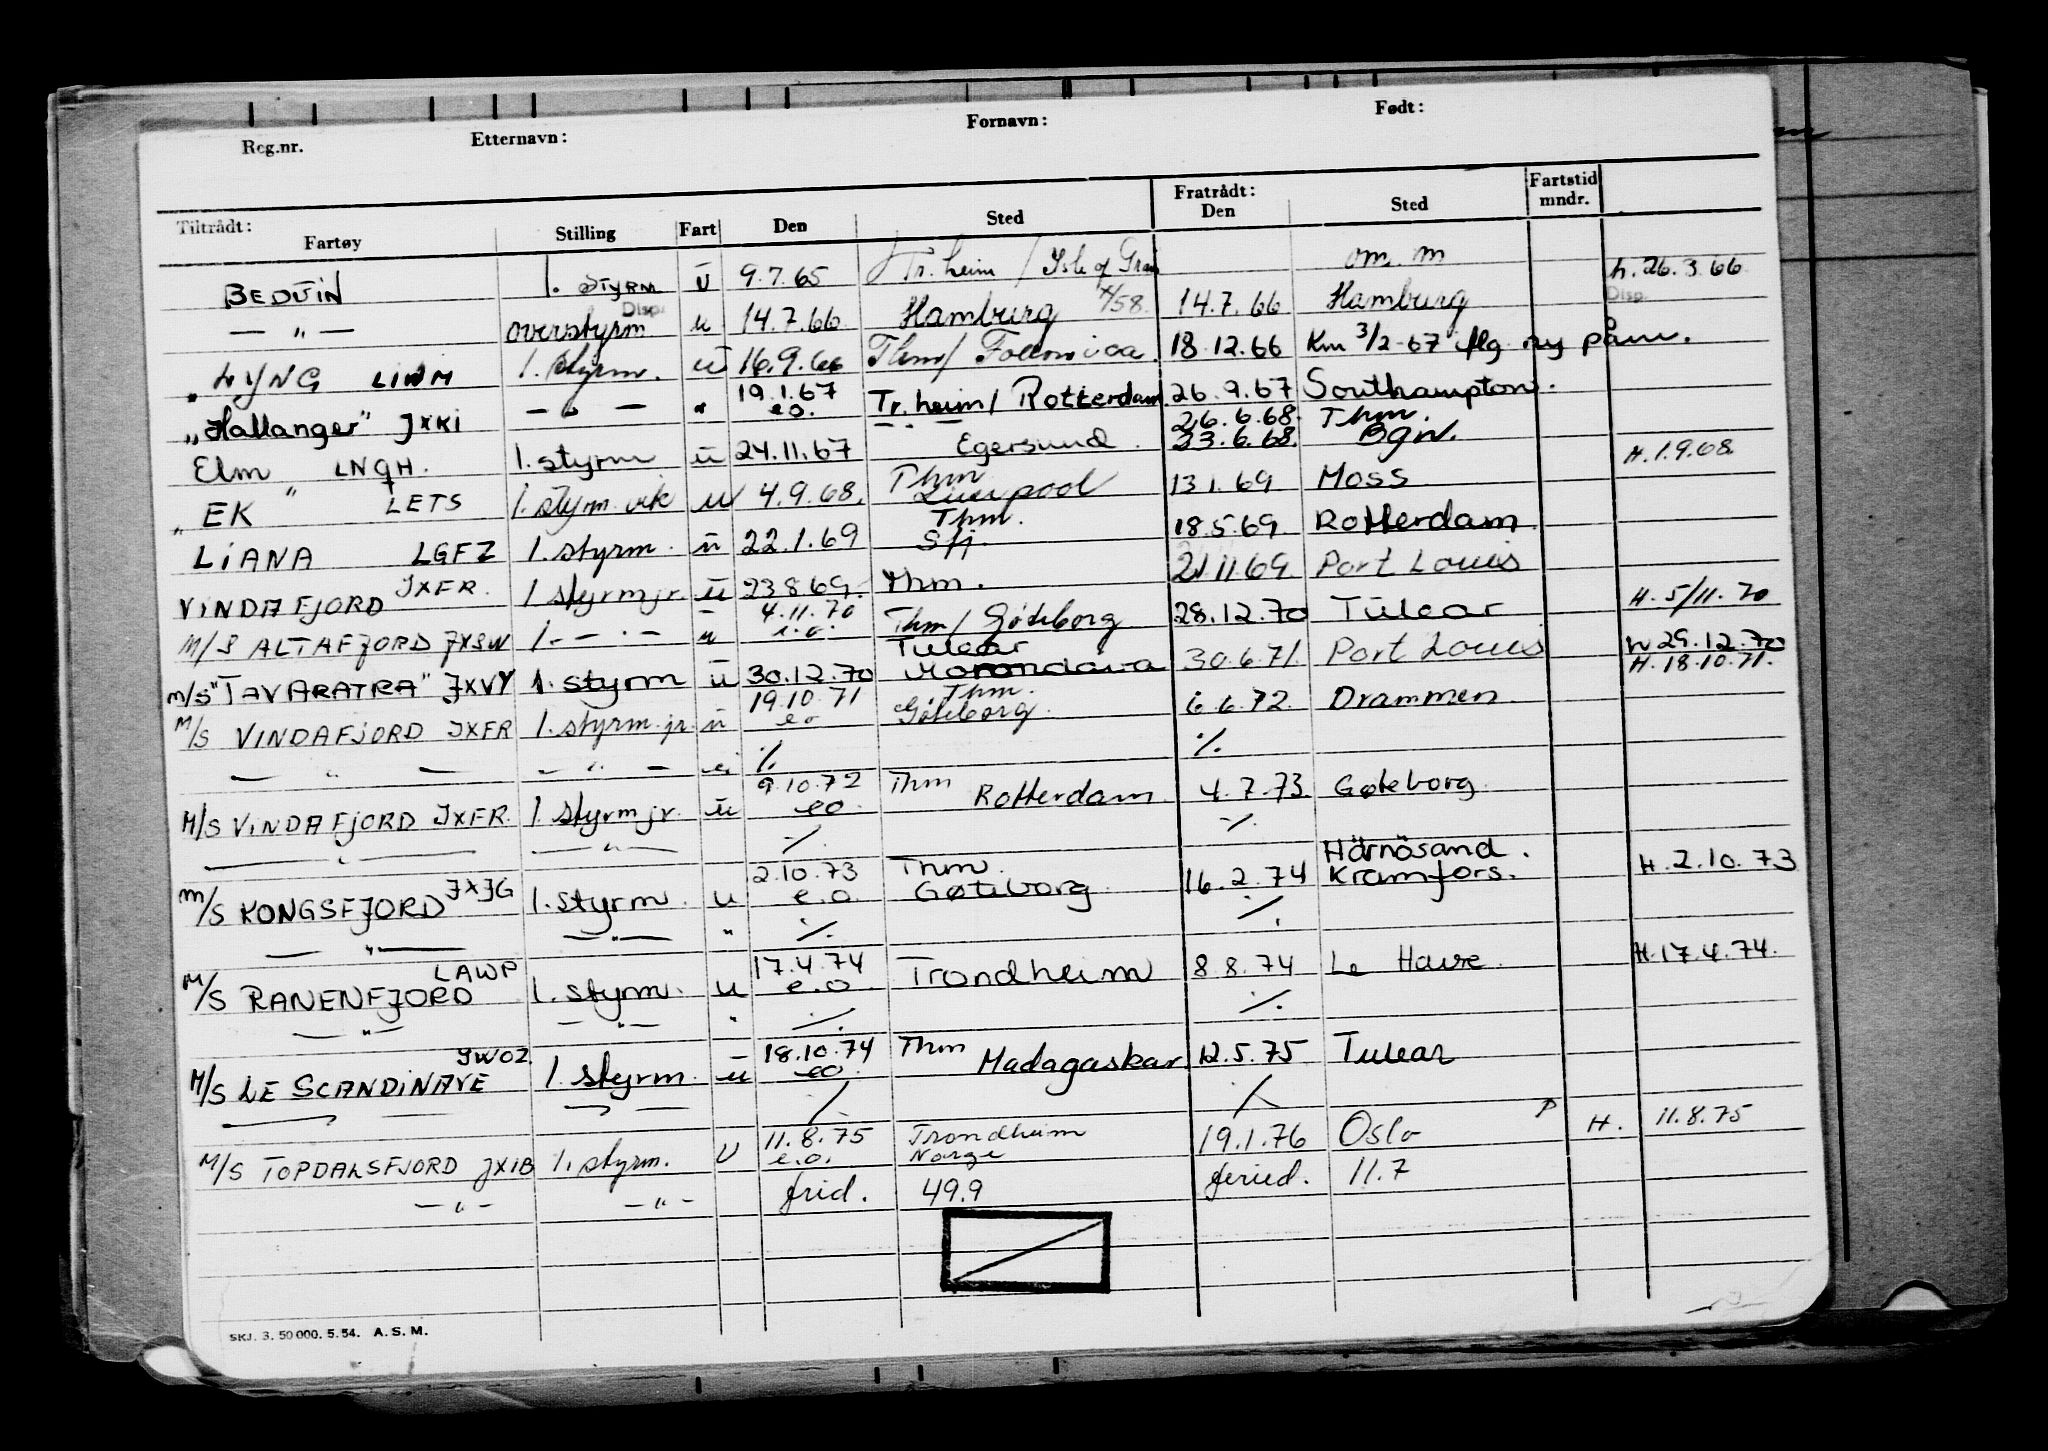 Reg.nr. Etternavn: Fornavn: Født:
Tiltrådt: Fratrådt: Fartstid
Fartøy Stilling Fart Den Sted Den Sted mndr.
BEDUIN 1. STYRM U 9.7.65 Tr.heim / Isle of Grain om. m h. 26.3.66
— " — overstyrm Disp. u 14.7.66 Hamburg 4/58. 14.7.66 Hamburg Disp.
"LYNG LIWM 1. styrm. u 16.9.66 Thm/ 18.12.66 Km 3/2-67 flg. ny påm.
"Hallanger" JXKI — " — " 19.1.67 e.o. Tr.heim/ Rotterdam 26.9.67 Southampton.
Elm LNQH. 1. styrm u 24.11.67 — " — Egersund. 26.6.68. Thm. 23.6.68. Bgn.
"EK" LETS 1. styrm. vik u 4.9.68. Thm Liverpool 13.1.69 Moss H. 1.9.68.
LIANA LGFZ 1. styrm. u 22.1.69 Thm. Sfj. 18.5.69. Rotterdam
VINDAFJORD JXFR. 1 styrm jr. u 23.8.69. Thm. 21.11.69. Port Louis
M/S ALTAFJORD JXSW 1. — " — u 4.11.70 e.o. Thm/ Göteborg 28.12.70 Tulear H. 5/11.70
M/S "TAVARATRA" JXVY 1. styrm u 30.12.70 Tulear Morondava 30.6.71. Port Louis h 29.12.70
M/S VINDAFJORD JXFR 1. styrm. jr. u 19.10.71 eo Thm. Göteborg. 6.6.72. Drammen. H. 18.10.71.
— " — — " — " ./. ./.
M/S VINDAFJORD JXFR. 1. styrm jr. u 9.10.72 eo Thm Rotterdam. 4.7.73. Gøteborg.
— " — — " — ./. ./.
M/S KONGSFJORD JXJG 1. styrm. u 2.10.73 e.o. Thm. Gøteborg 16.2.74 Härnösand. Kramfors. H. 2.10.73
— " — — " — " ./. ./.
M/S RANENFJORD LAWP 1. styrm. u 17.4.74 e.o. Trondheim 8.8.74 Le Havre. H. 17.4.74.
— " — — " — " ./. ./.
M/S LE SCANDINAVE JWOZ 1. styrm. u 18.10.74 eo. Thm Madagaskar 12.5.75 Tulear
— " — — " — ./. ./.
M/S TOPDALSFJORD JXIB 1. styrm. U 11.8.75 e.o. Trondheim Norge 19.1.76 Oslo P H. 11.8.75
— " — — " — frid. 49.9 feried. 11.7
SKJ. 3. 50 000. 5. 54. A. S. M.